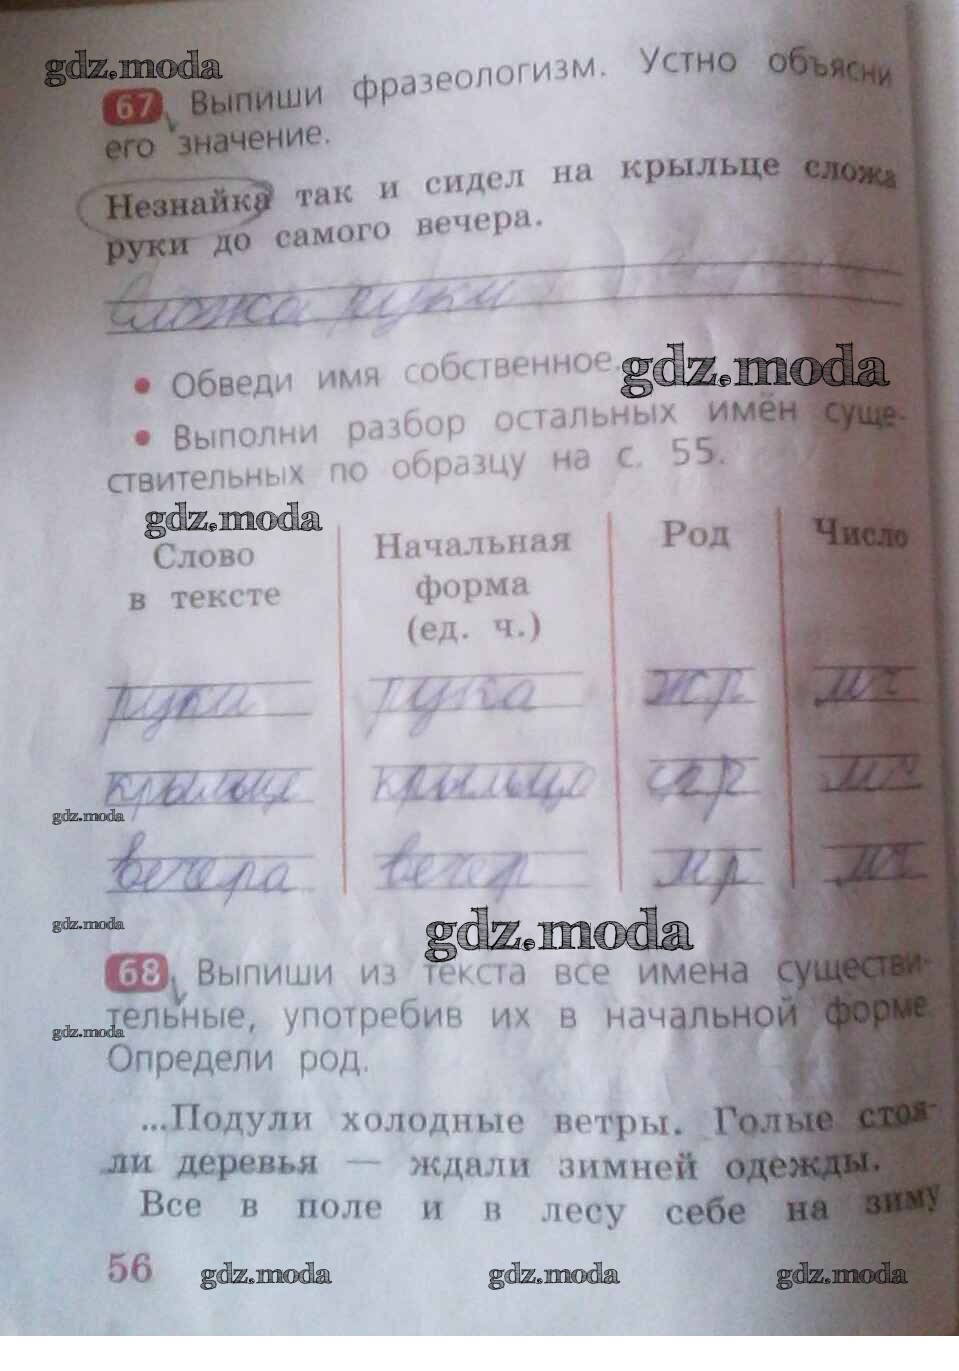 gdz.moda
67 Выпиши фразеологизм. Устно объясни
его значение.
Незнайка так и сидел на крыльце сложа
руки до самого вечера.
Сложа руки
• Обведи имя собственное.
gdz.moda
• Выполни разбор остальных имён суще-
ствительных по образцу на с. 55.
gdz.moda
Слово в тексте | Начальная форма (ед. ч.) | Род | Число
руки | рука | жр | мч
крыльце | крыльцо | ср | мч
gdz.moda
вечера | вечер | мр | мч
gdz.moda
gdz.moda
68 Выпиши из текста все имена существи-
тельные, употребив их в начальной форме.
gdz.moda
Определи род.
...Подули холодные ветры. Голые стоя-
ли деревья — ждали зимней одежды.
Все в поле и в лесу себе на зиму
56
gdz.moda
gdz.moda
gdz.moda